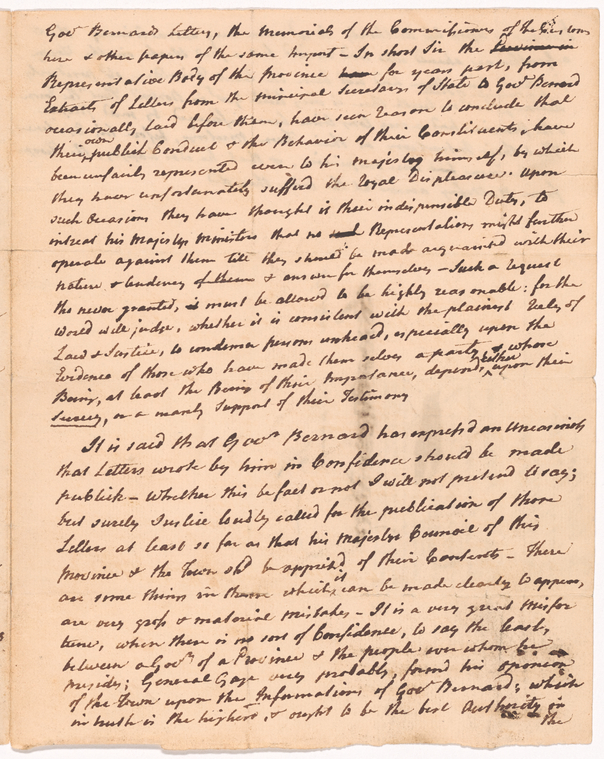 Govr Bernard Letters, the Memorials of the Commissioners of the Customs
here & other papers of the same Import – In short Sir the
Representative Body of the Province for years past, from
Extracts of Letters from the principal Secretarys of State to Govr Bernard
occasionally laid before them, have seen Reason to conclude that
their own publick Conduct & the Behavior of their Constituents, have
been unfairly represented even to his majesty himself, by which
they have unfortunately sufferd the royal Displeasure. Upon
such Occasions they have thought it their indispensible Duty, to
intreat his Majestys Ministers that no Representations might further
operate against them till they should be made acquainted with their
nature & tendency & answer for themselves – Such a request
tho never granted, must be allowed to be highly reasonable: for the
World will judge, whether it is consistent with the plainest Rules of
Law & Justice, to condemn persons unheard, especially upon the
Evidence of those who have made themselves a party & whose
Being, at least the Being of their Importance, depends either upon their
Secrecy, or a manly Support of their Testimony
It is said that Govr Bernard has expressd an Uneasiness
that Letters wrote by him in Confidence should be made
publick – whether this be fact or not I will not pretend to say;
but surely Justice loudly called for the publication of those
Letters at least so far as that his majestys Council of this
Province & the Town shd be apprisd of their Contents – There
are some things in them which it can be made clearly to appear,
are very gross & material mistakes – It is a very great misfor
tune, when there is no sort of Confidence, to say the least,
between a Govr of a Province & the people over whom he
presides; General Gage very probably, formd his opinion
of the Town upon the Informations of Govr Bernard; which
in truth is the highest, & ought to be the best Authority in
the